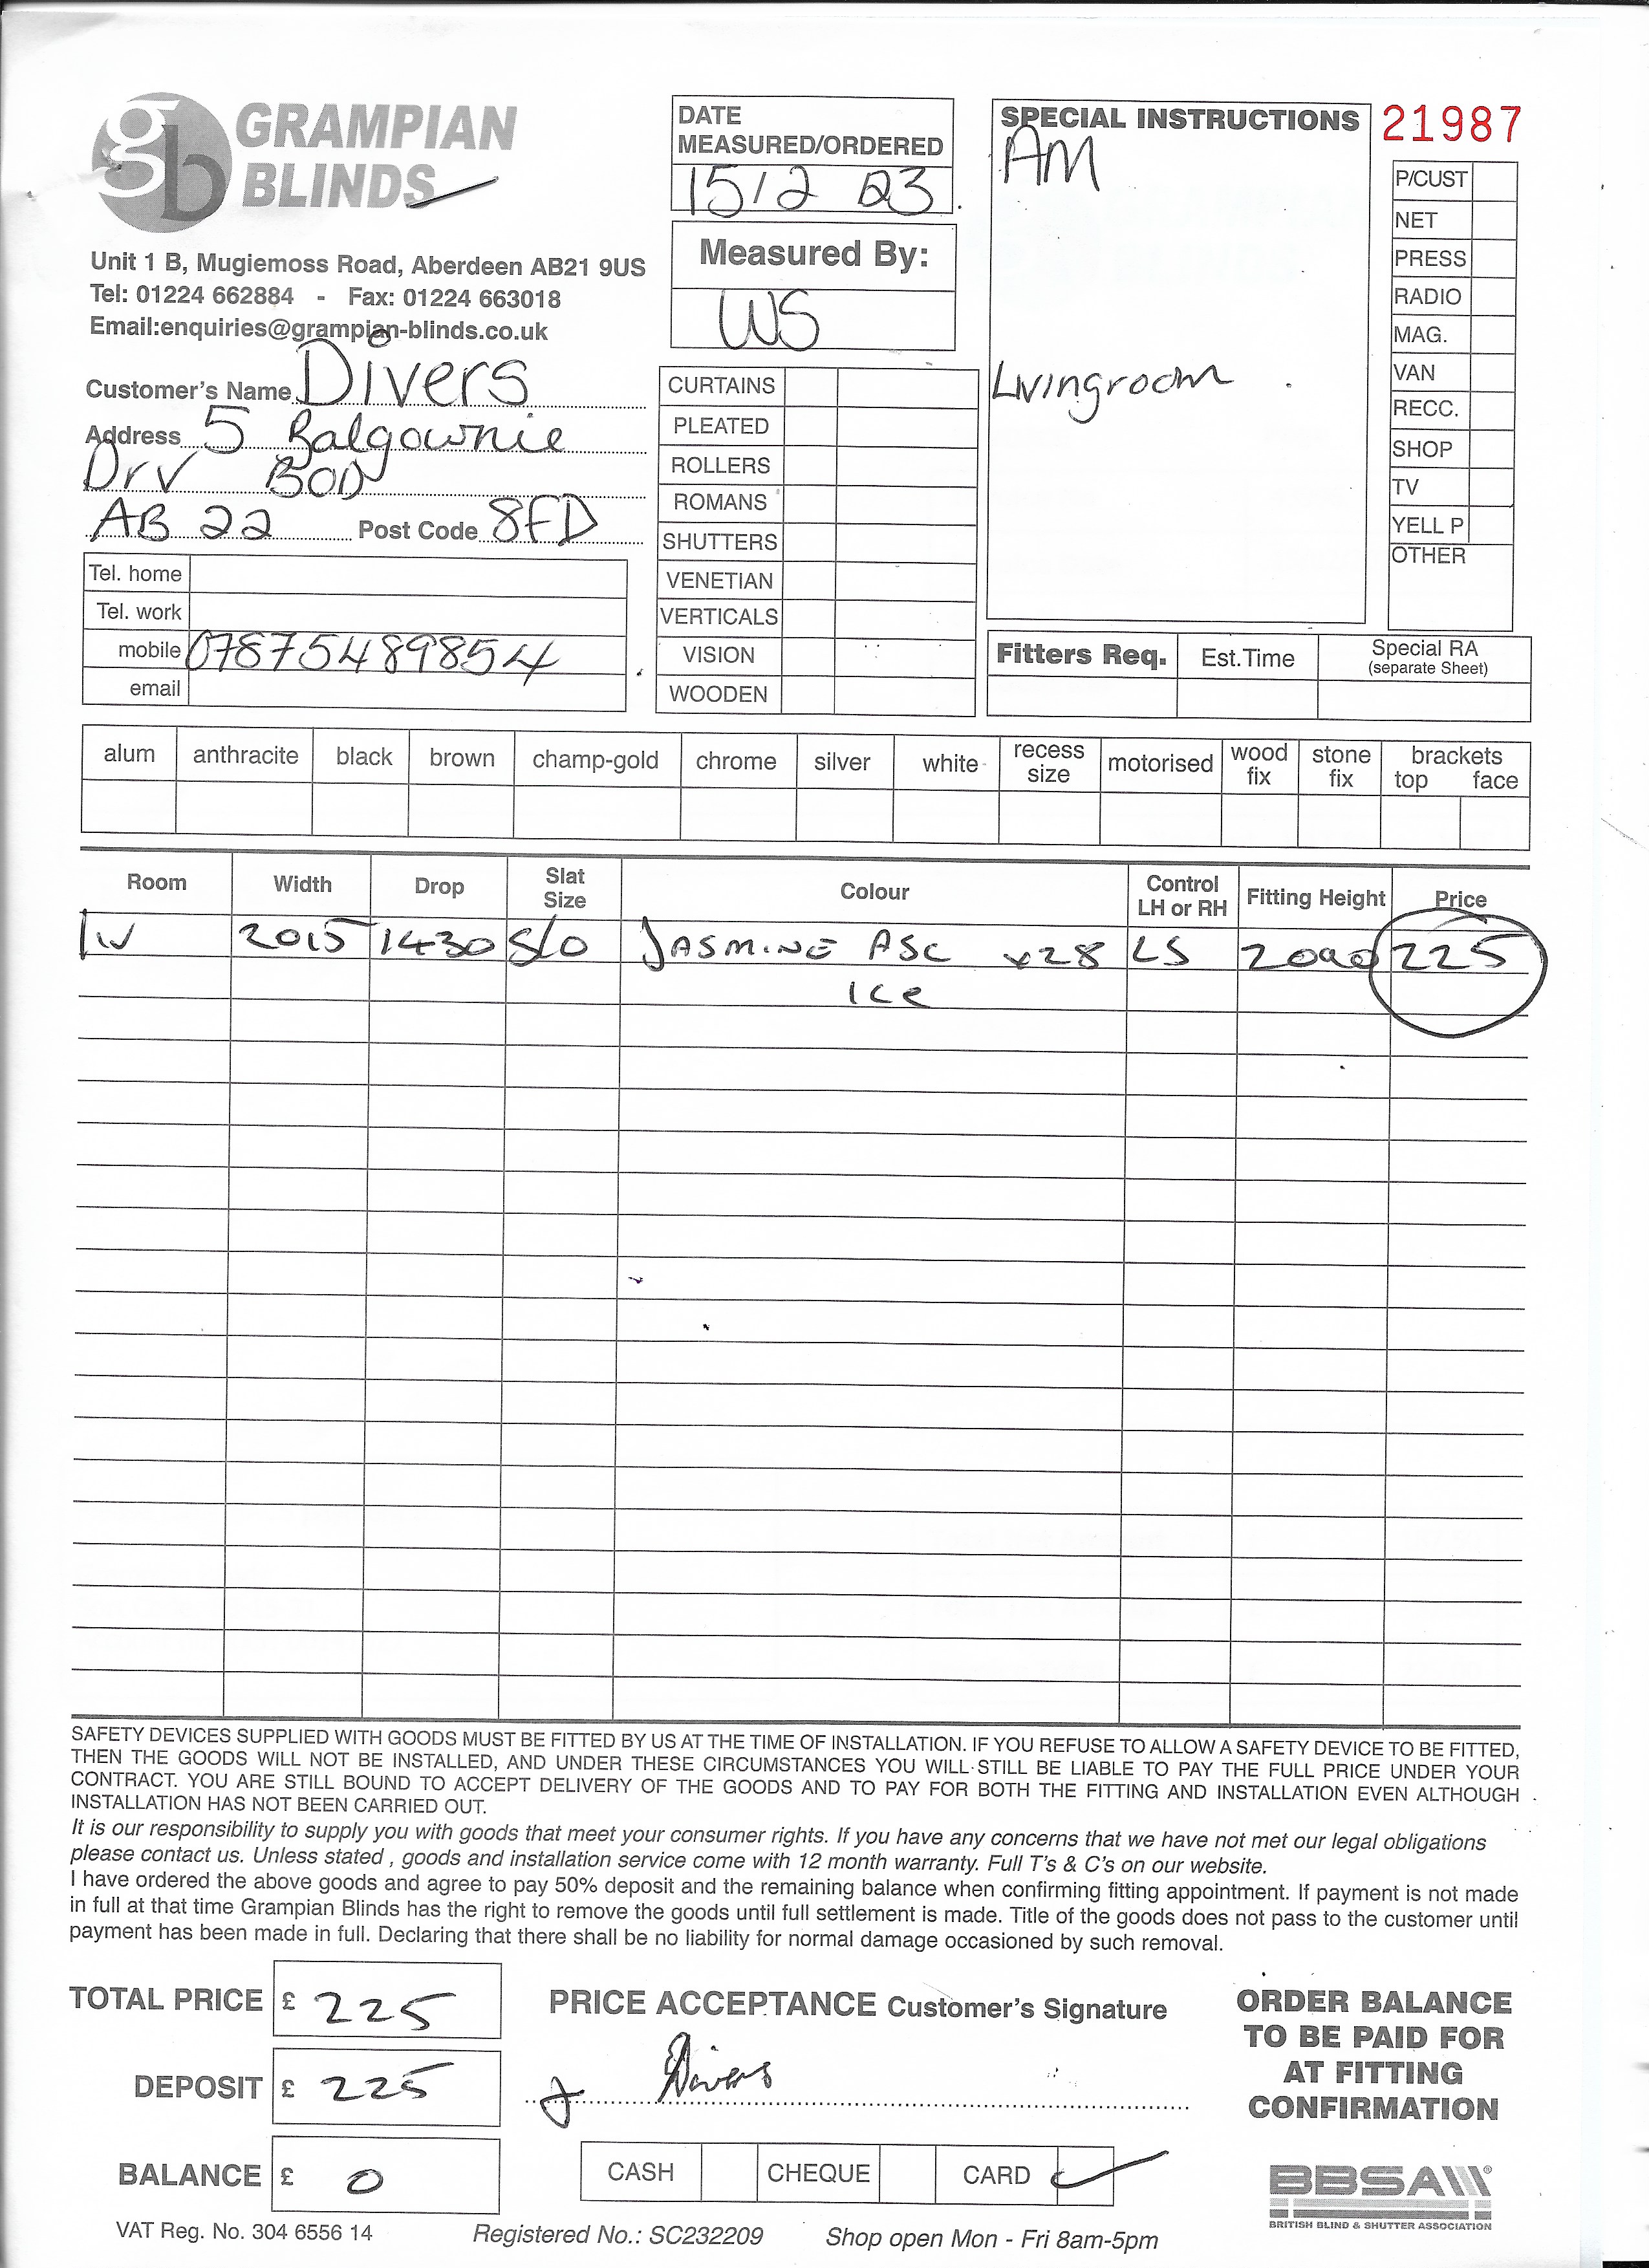 gb GRAMPIAN
BLINDS
Unit 1 B, Mugiemoss Road, Aberdeen AB21 9US
Tel: 01224 662884 - Fax: 01224 663018
Email:enquiries@grampian-blinds.co.uk
Customer's Name Divers
Address 5 Balgownie
Drv BOD
AB 22 Post Code 8FD
Tel. home
Tel. work
mobile 07875489854
email
DATE
MEASURED/ORDERED
15/2 23
Measured By:
WS
CURTAINS
PLEATED
ROLLERS
ROMANS
SHUTTERS
VENETIAN
VERTICALS
VISION
WOODEN
SPECIAL INSTRUCTIONS
AM
Livingroom
21987
P/CUST
NET
PRESS
RADIO
MAG.
VAN
RECC.
SHOP
TV
YELL P
OTHER
Fitters Req. Est.Time Special RA
(separate Sheet)
alum anthracite black brown champ-gold chrome silver white recess size motorised wood fix stone fix brackets top face
Room Width Drop Slat Size Colour Control LH or RH Fitting Height Price
LV 2015 1430 S/O JASMINE ASC x28 LS 225
ICE
SAFETY DEVICES SUPPLIED WITH GOODS MUST BE FITTED BY US AT THE TIME OF INSTALLATION. IF YOU REFUSE TO ALLOW A SAFETY DEVICE TO BE FITTED,
THEN THE GOODS WILL NOT BE INSTALLED, AND UNDER THESE CIRCUMSTANCES YOU WILL STILL BE LIABLE TO PAY THE FULL PRICE UNDER YOUR
CONTRACT. YOU ARE STILL BOUND TO ACCEPT DELIVERY OF THE GOODS AND TO PAY FOR BOTH THE FITTING AND INSTALLATION EVEN ALTHOUGH
INSTALLATION HAS NOT BEEN CARRIED OUT.
It is our responsibility to supply you with goods that meet your consumer rights. If you have any concerns that we have not met our legal obligations
please contact us. Unless stated , goods and installation service come with 12 month warranty. Full T's & C's on our website.
I have ordered the above goods and agree to pay 50% deposit and the remaining balance when confirming fitting appointment. If payment is not made
in full at that time Grampian Blinds has the right to remove the goods until full settlement is made. Title of the goods does not pass to the customer until
payment has been made in full. Declaring that there shall be no liability for normal damage occasioned by such removal.
TOTAL PRICE £ 225
DEPOSIT £ 225
BALANCE £ 0
PRICE ACCEPTANCE Customer's Signature
Divers
CASH CHEQUE CARD
ORDER BALANCE
TO BE PAID FOR
AT FITTING
CONFIRMATION
BBSA
BRITISH BLIND & SHUTTER ASSOCIATION
VAT Reg. No. 304 6556 14 Registered No.: SC232209 Shop open Mon - Fri 8am-5pm